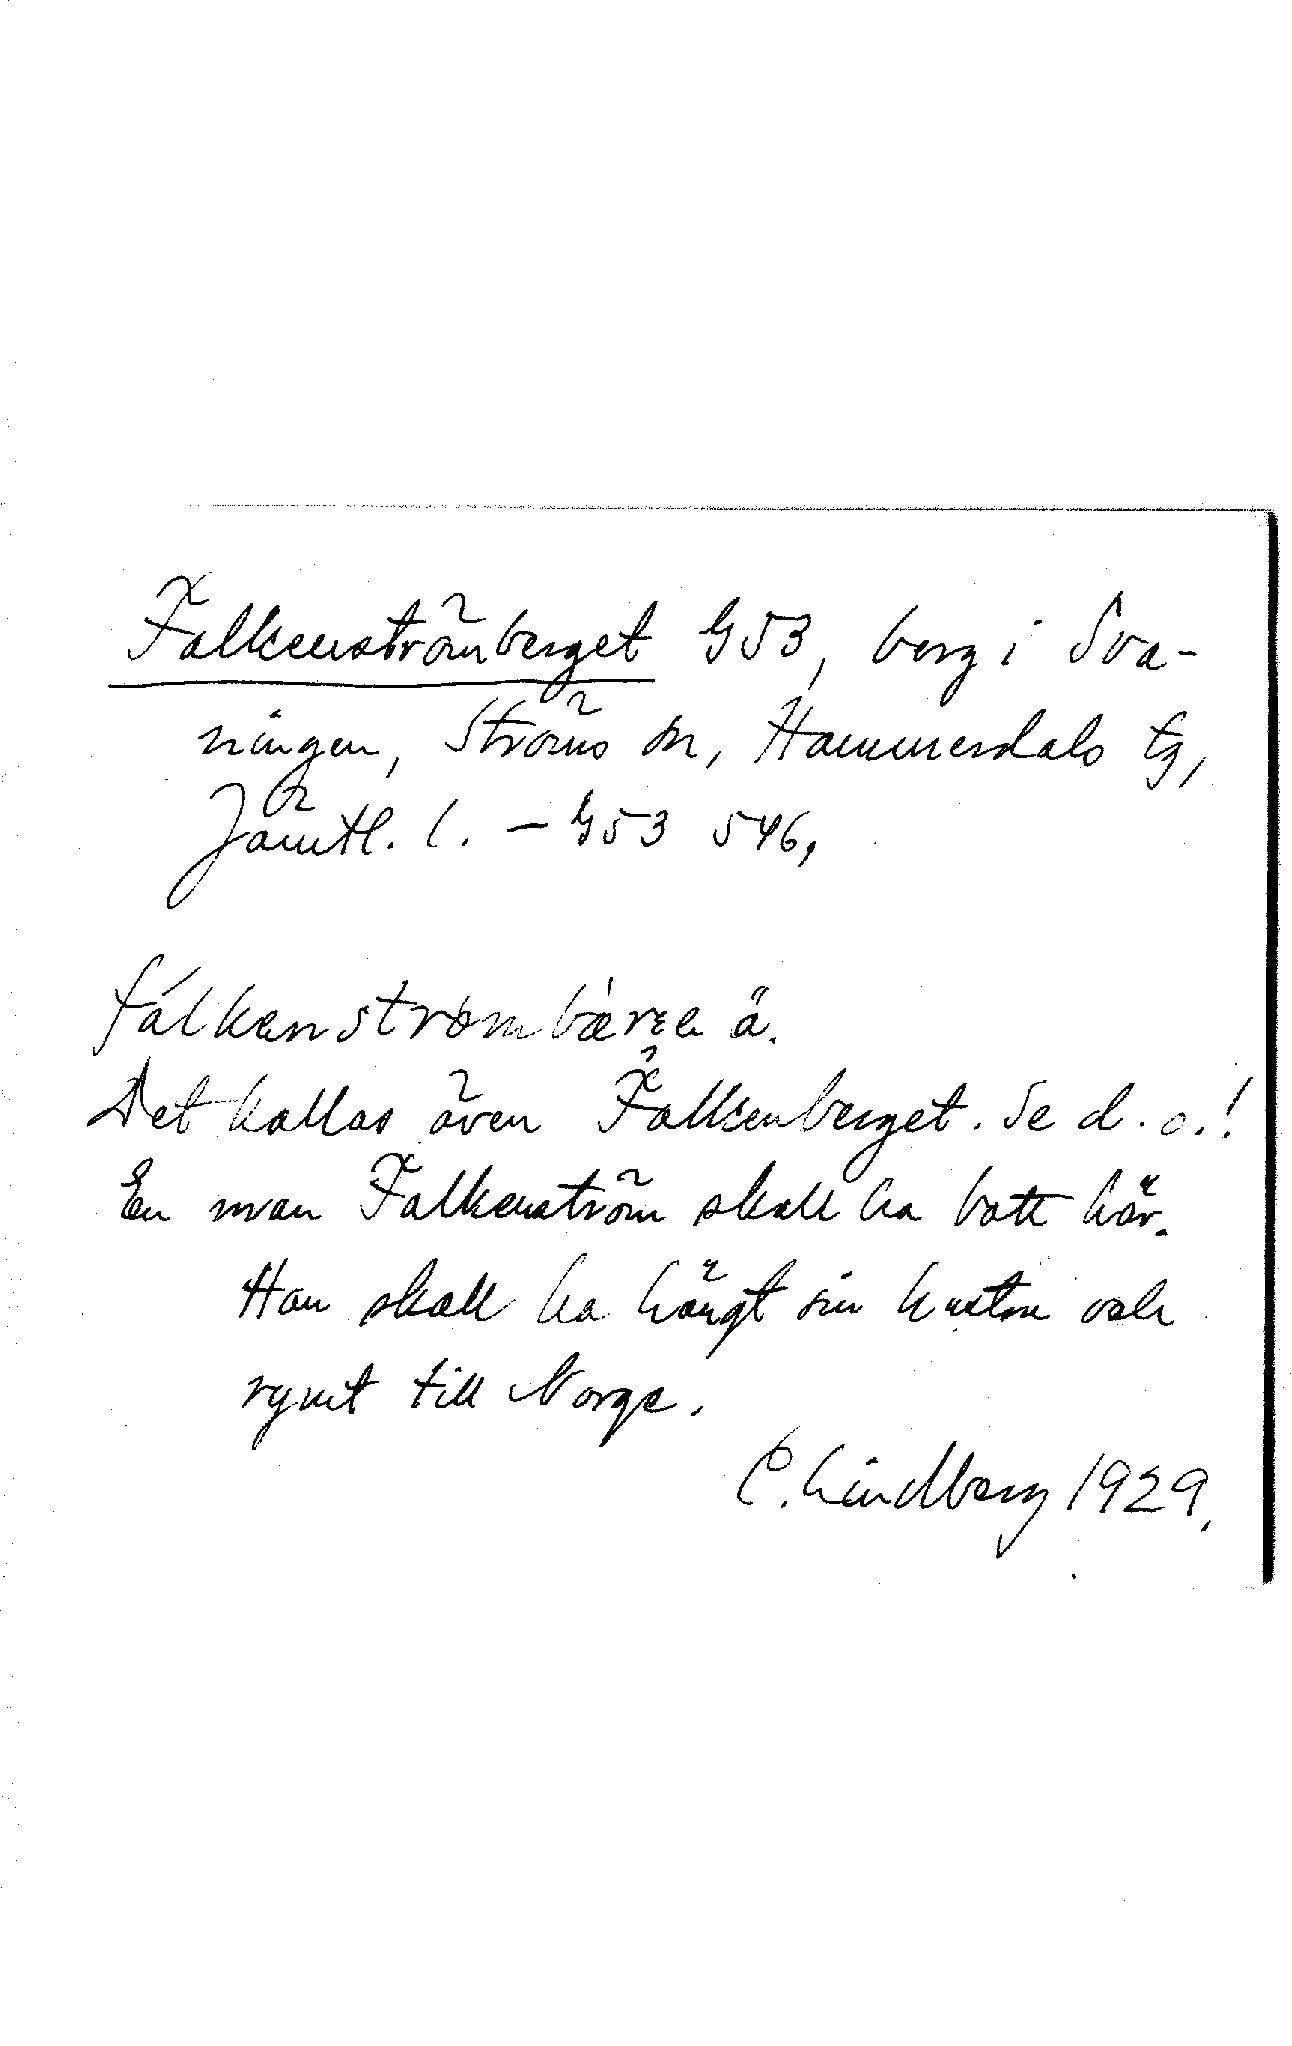 Falkenströmberget G53, berg i Sva-
ningen, Ströms sn, Hammerdals tg,
Jämtl. l. – G53 546,
fálkanstrømbære ä.
Det kallas även Falkenberget. Se d. o.!
En man Falkenström skall ha bott här.
Han skall ha hängt sin hustru och
rymt till Norge.
C. Lindberg 1929.